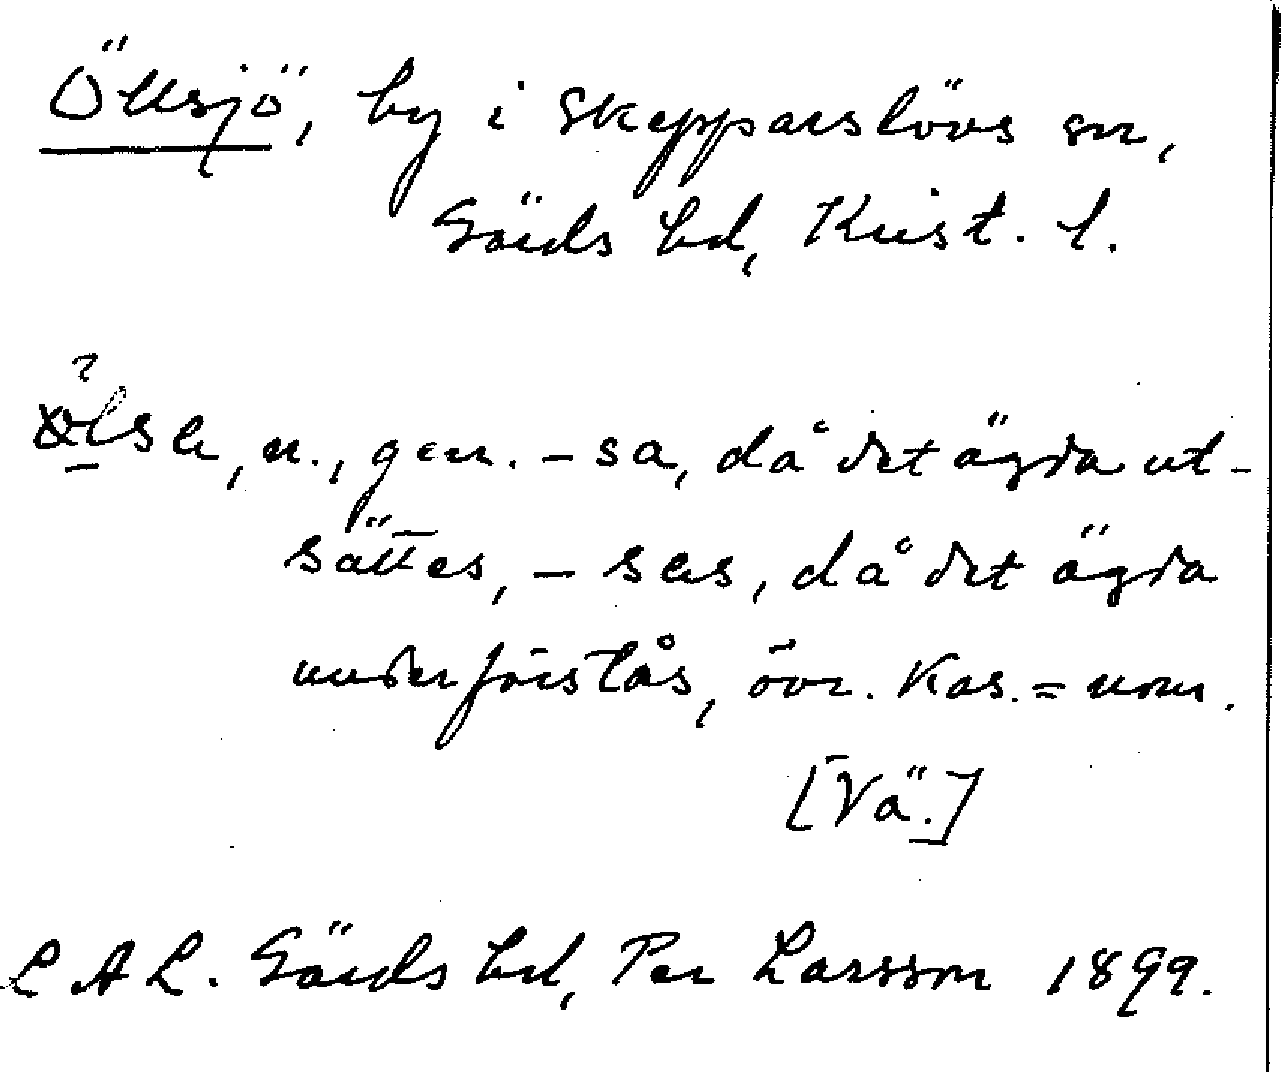 Öllsjö, by i Skepparslövs sn,
Gärds hd, Krist. l.
?
ølsa, n., gen. -sa, då det ägda ut-
sättes, -sas, då det ägda
underförstås, övr. kas. = nom.
[Vä.]
LAL. Gärds hd, Per Larsson 1899.